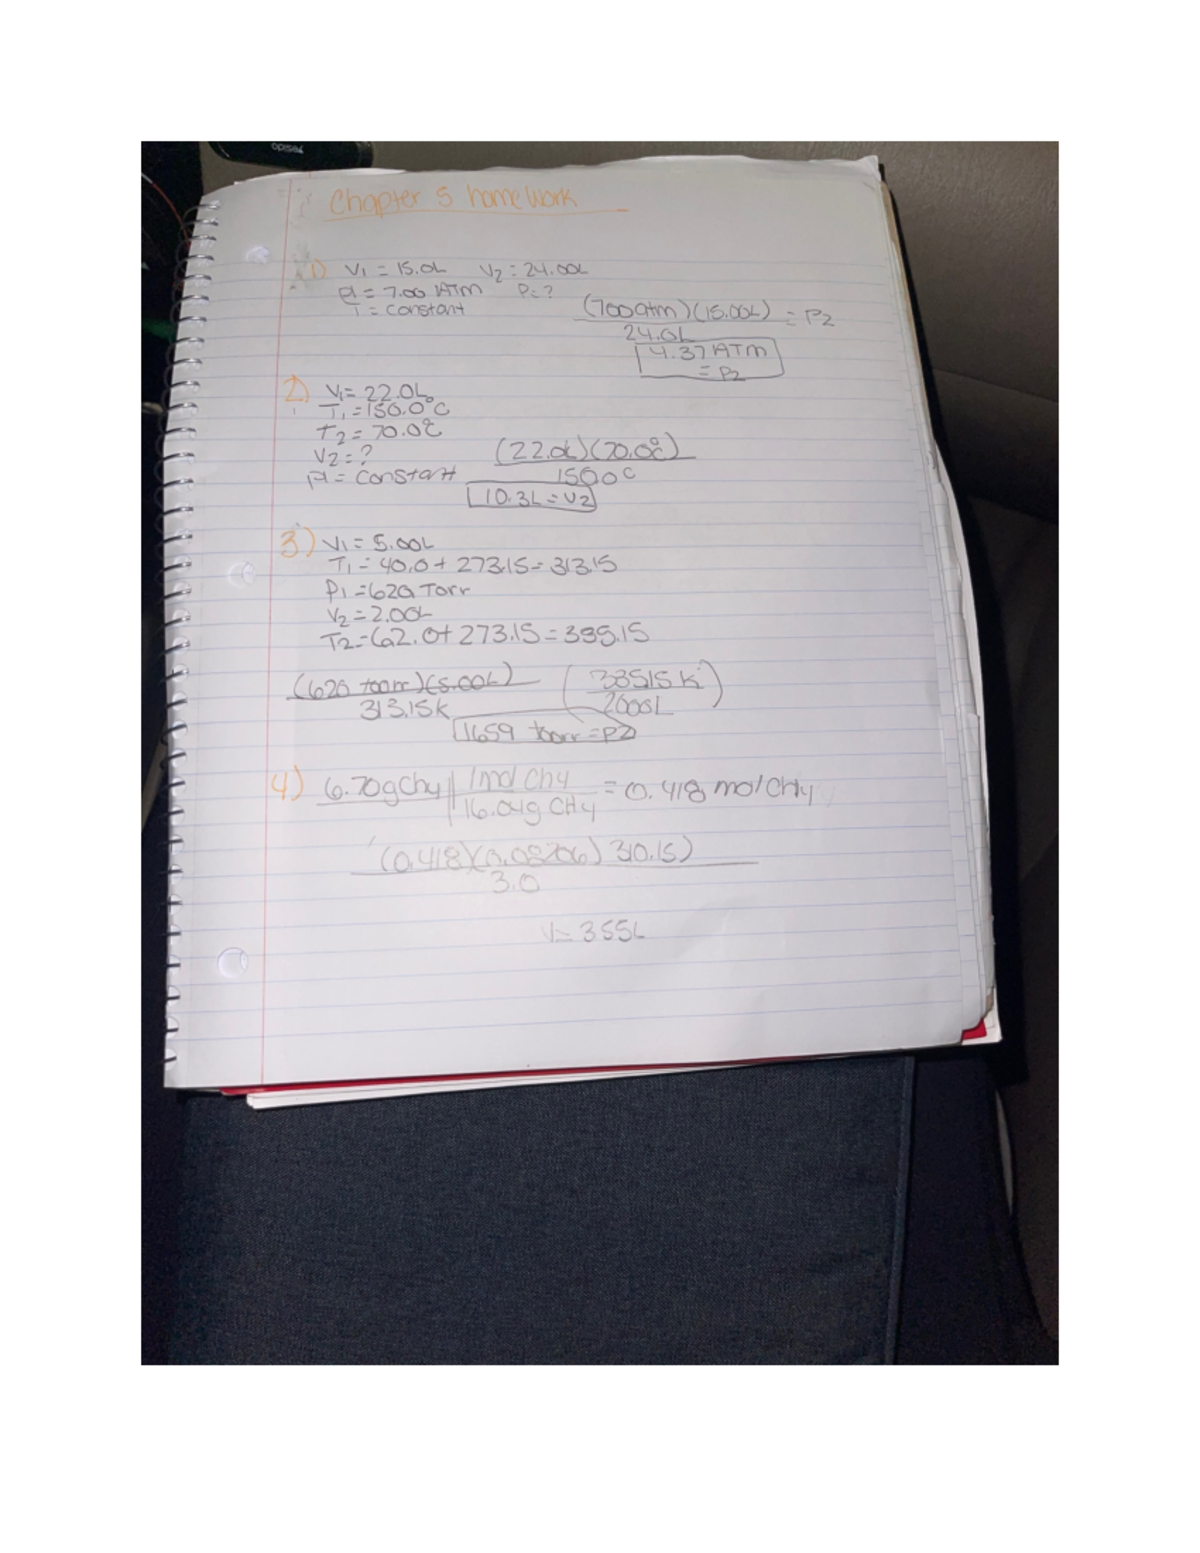 Chapter 5 homework
1) V1 = 15.0L V2 = 24.00L
P1 = 7.00 ATM P2 ?
T = constant
(700atm)(15.00L) = P2
24.0L
4.37 ATM
= P2
2) V1 = 22.0L
T1 = 150.0°C
T2 = 70.0°C
V2 = ?
P1 = constant
(22.0L)(70.0°C)
150.0°C
10.3L = V2
3) V1 = 5.00L
T1 = 40.0 + 273.15 = 313.15
P1 = 620 Torr
V2 = 2.00L
T2 = 62.0 + 273.15 = 335.15
(620 toorr)(5.00L) (335.15 K)
313.15K 2.00L
1659 toorr = P2
4) 6.70g CH4 | 1 mol CH4 = 0.418 mol CH4
16.04g CH4
(0.418)(0.08206) 310.15)
3.0
V = 3.55L